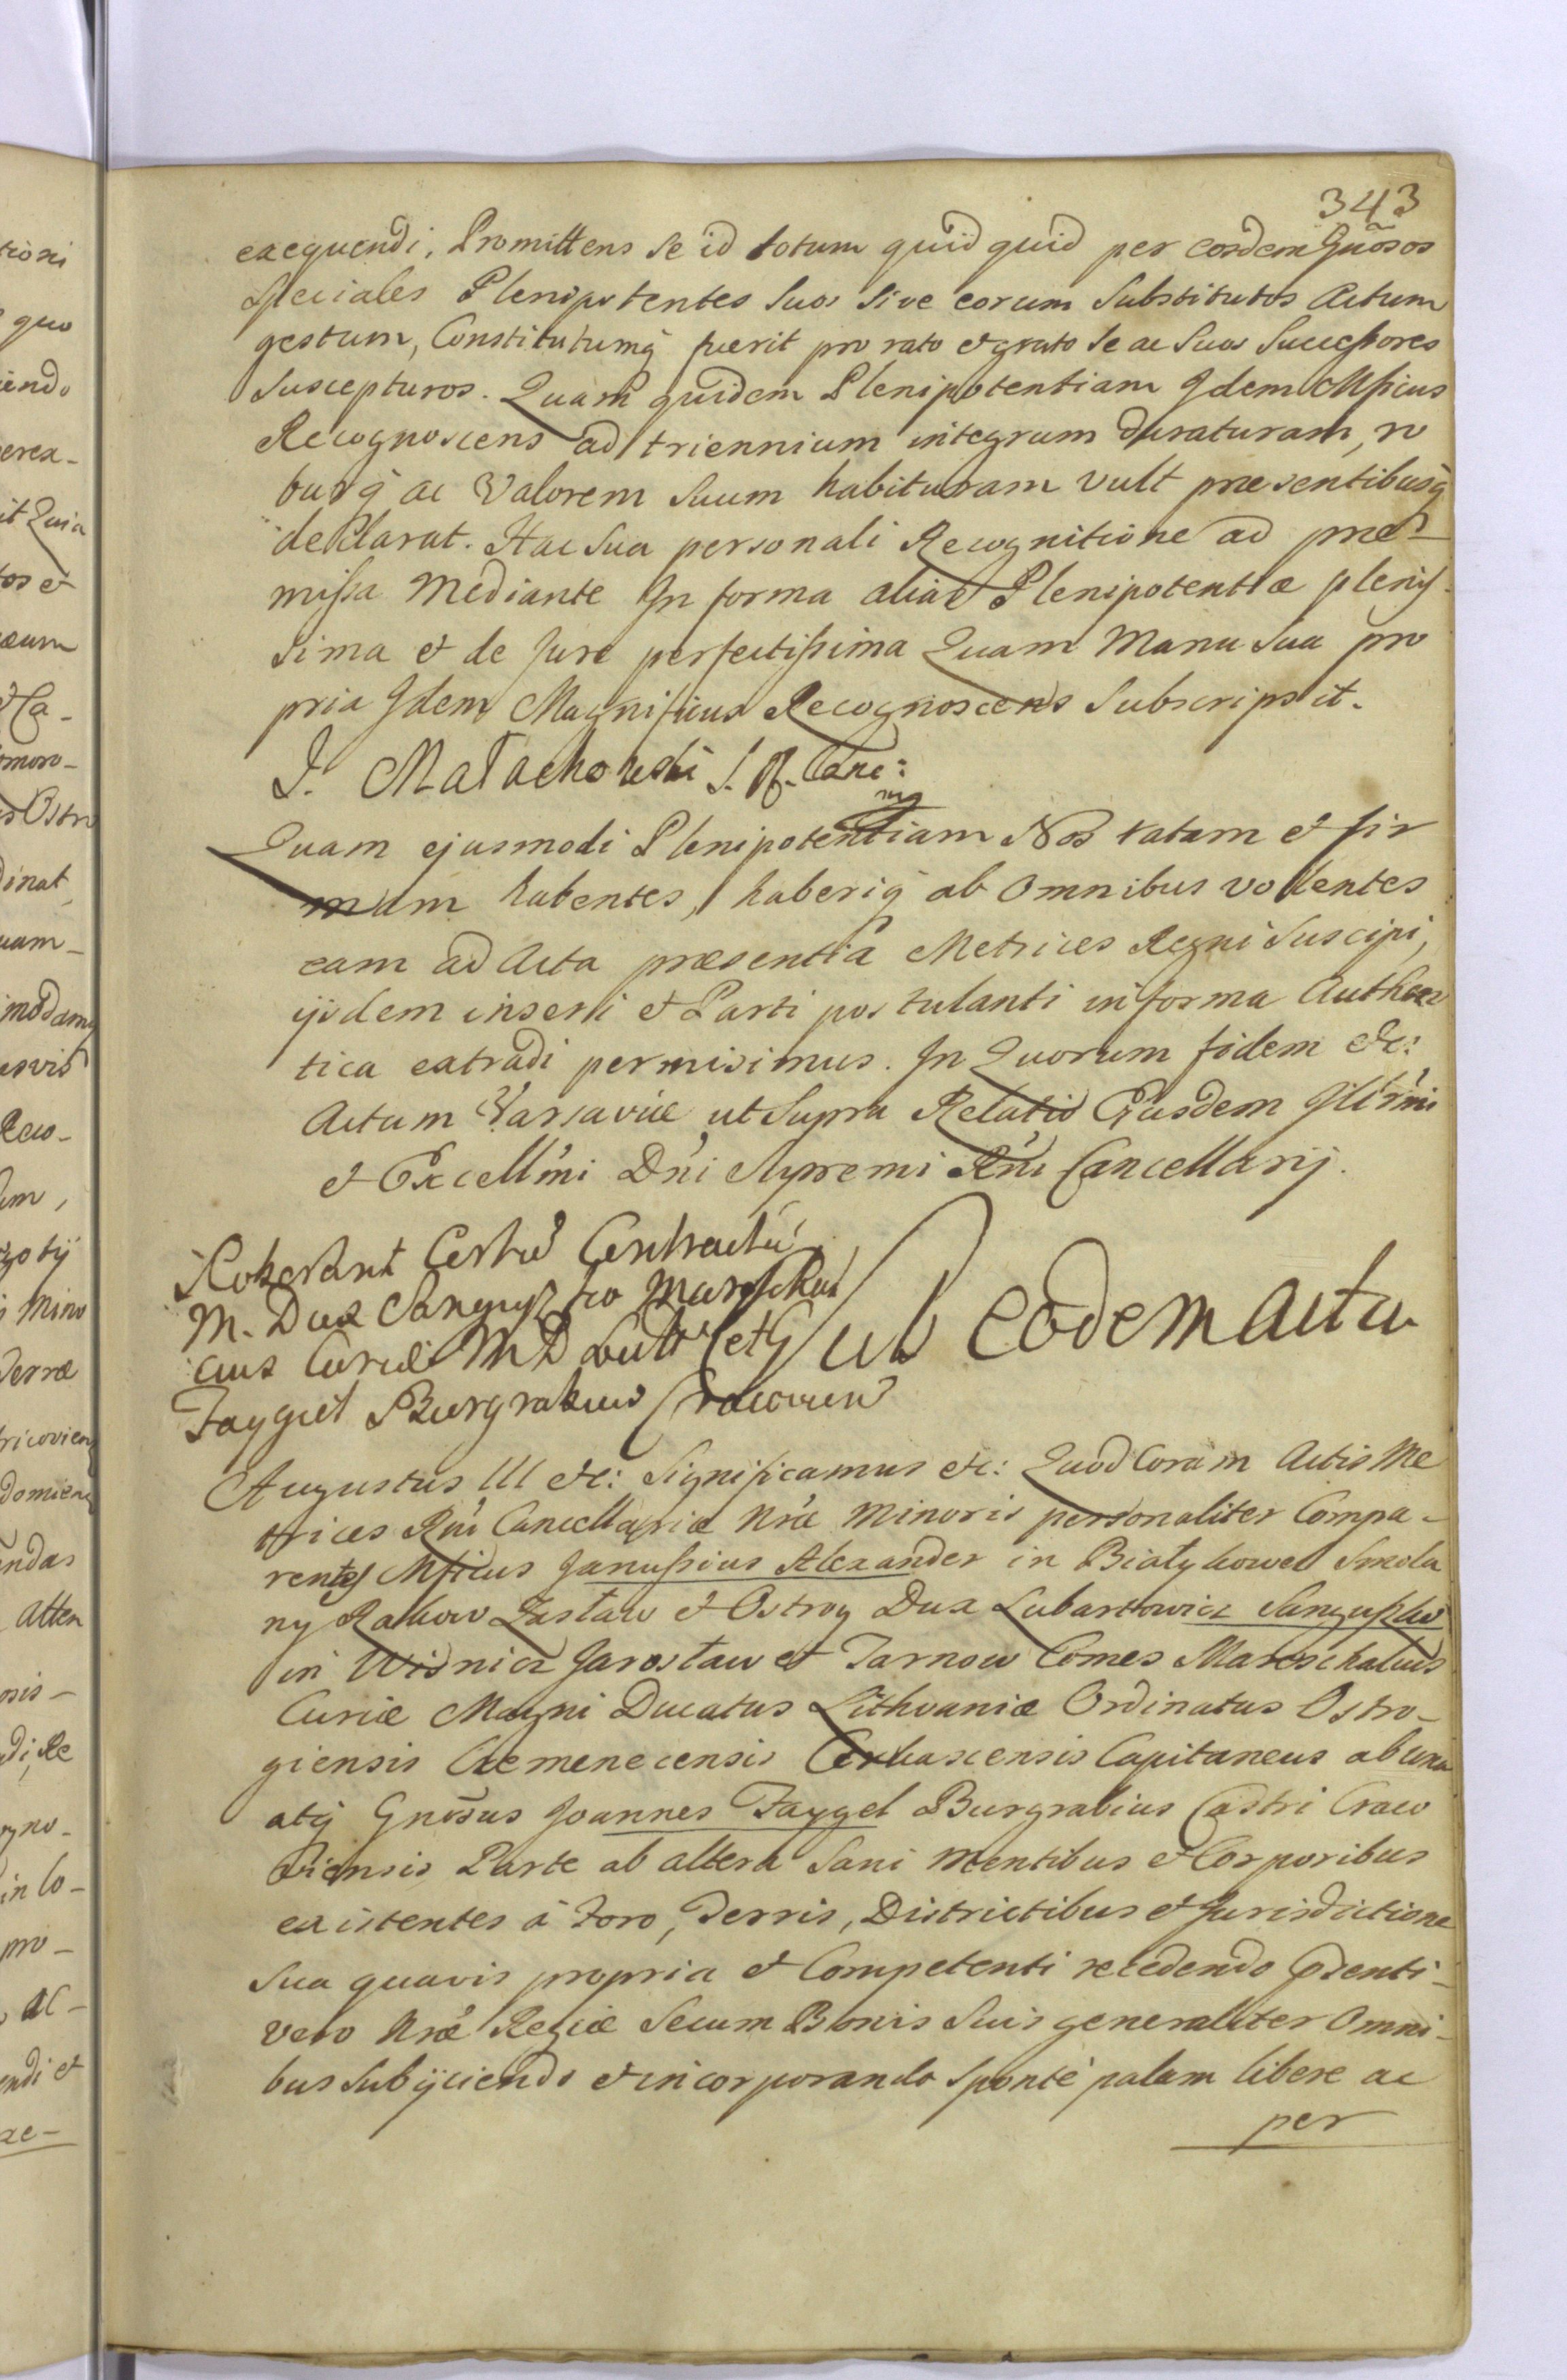 343
exequendi. Promittens se id totum quidquid per eosdem Gnosos
Speciales Plenipotentes Suos sive eorum Substitutos Actum
gestum, Constitutumq fuerit pro rato et grato se ac Suos Successores
Suscepturos. Quam quidem Plenipotentiam Idem Mficus
Recognoscens ad triennium integrum duraturam, ro
burq ac Valorem Suum habituram vult praesentibusq
declarat. Hac Sua personali Recognitione ad prae-
missa Mediante In forma aliae Plenipotentiae plenis-
sima et de Jure perfectissima Quam Manu Sua pro
pria Idem Magnificus Recognoscens Subscripsit.
J. Małachowski S. R. Canc:
mp
Quam ejusmodi Plenipotentiam Nos ratam et fir
mam habentes, haberiq ab Omnibus volentes
eam ad Acta praesentia Metrices Regni Suscipi,
ijsdem inseri et Parti postulanti in forma Authen
tica extradi permisimus. In Quorum fidem etc:
Actum Varsaviae ut Supra Relatio Ejusdem Illrmi
et Excellmi Dni Supremi Rni Cancellarij.
Roborant Certu Contractu
M. Dux Sanguszko Mareschal
cus Curiae M D Litt et G
Faygiel Burgrabius Cracovien
Sub eodem actu
Augustus III etc: Significamus etc: Quod Coram Actis Me
trices Rni Cancellariae Nrae Minoris personaliter Compa-
rentes Mficus Janussius Alexander in Białykowel Smola
ny Rakow Zasław et Ostrog Dux Lubartowicz Sanguszko
in Wisnicz Jarosław et Tarnow Comes Mareschalcus
Curiae Magni Ducatus Lithvaniae Ordinatus Ostro-
giensis Cremenecensis Czerkascensis Capitaneus ab una
atq Gnosus Joannes Faygel Burgrabius Castri Craco
viensis Parte ab altera Sani Mentibus et Corporibus
existentes à Foro, Terris, Districtibus et Jurisdictione
Sua quavis propria et Competenti recedendo Psenti-
vero Nrae Regiae Secum Bonis Suis generaliter Omni-
bus Subijciendo et incorporando Sponte palam libere ac
per